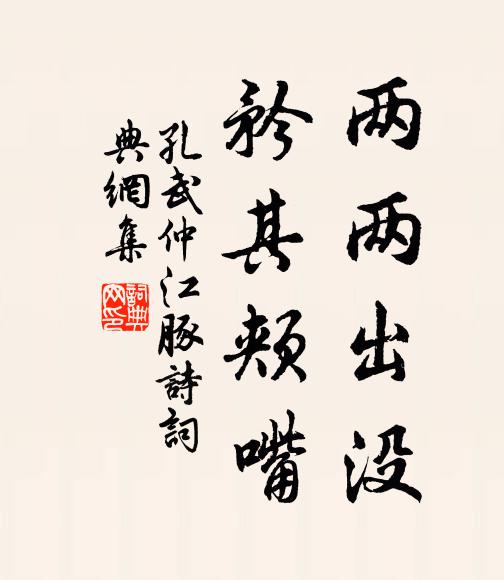 两两出没
矜其颊嘴
孔武仲江豚詩詞
典網集
詞典网印